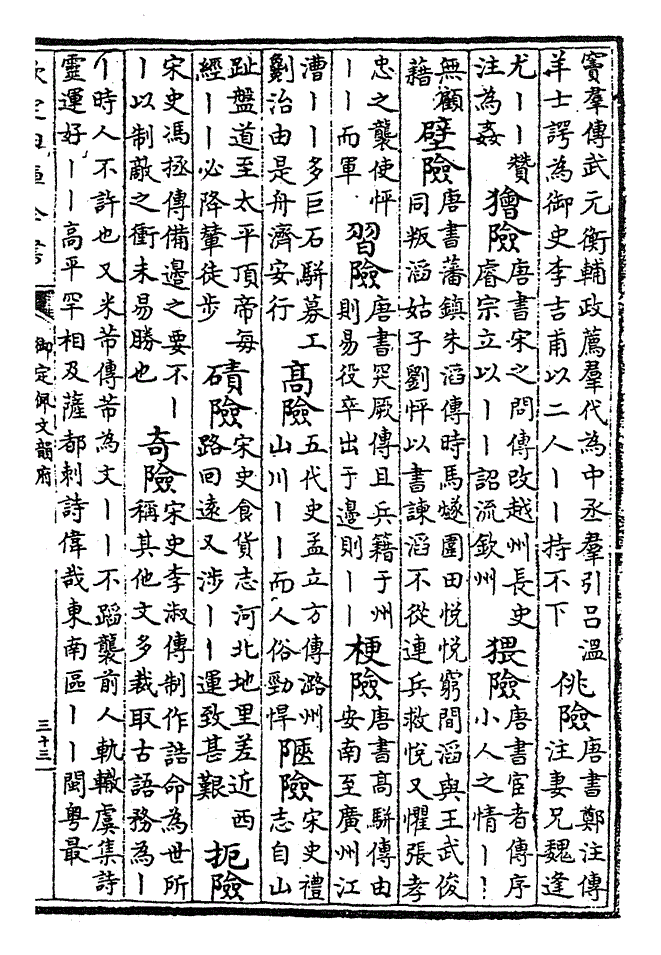 竇羣傳武元衡輔政薦羣代為中丞羣引呂溫
羊士諤為御史李吉甫以二人丨丨持不下
佻險
唐書鄭注傳
注妻兄魏逢
尤丨丨贊
注為姦
獪險
唐書宋之問傳改越州長史
睿宗立以丨丨詔流欽州
猥險
唐書宦者傳序
小人之情丨丨
無顧
藉
壁險
唐書藩鎮朱滔傳時馬燧圍田悅悅窮間滔與王武俊
同叛滔姑子劉怦以書諫滔不從連兵救悅又懼張孝
忠之襲使怦
丨丨而軍
習險
唐書突厥傳且兵籍于州
則易役卒出于邊則丨丨
梗險
唐書高駢傳由
安南至廣州江
漕丨丨多巨石駢募工
劖治由是舟濟安行
高險
五代史孟立方傳潞州
山川丨丨而人俗勁悍
陿險
宋史禮
志自山
趾盤道至太平頂帝每
經丨丨必降輦徒步
磧險
宋史食貨志河北地里差近西
路回遠又涉丨丨運致甚艱
扼險
宋史馮拯傳備邊之要不丨
丨以制敵之衝未易勝也
奇險
宋史李淑傳制作誥命為世所
稱其他文多裁取古語務為丨
丨時人不許也又米芾傳芾為文丨丨不蹈襲前人軌轍虞集詩
靈運好丨丨高平罕相及薩都剌詩偉哉東南區丨丨閩粵最
欽定四庫全書
御定佩文韻府
三十三